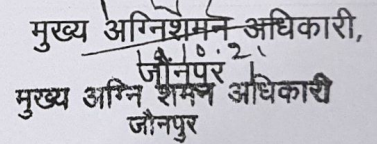 मुख्य अग्निशमन अधिकारी,
जौनपुर
मुख्य अग्नि शमन अधिकारी
जौनपुर